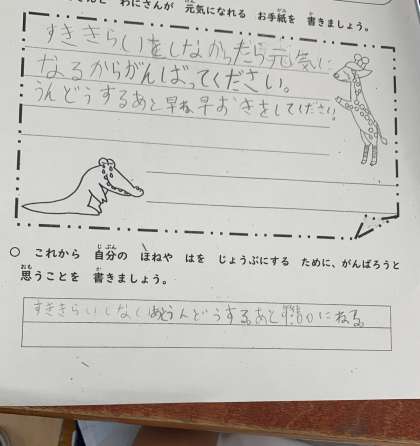 わにさんが 元気になれる お手紙を 書きましょう。
すききらいをしなかったら元気に
なるからがんばってください。
うんどうするあと早ね早おきをしてください。
○ これから 自分の ほねや はを じょうぶにする ために、がんばろうと
思うことを 書きましょう。
すききらいしなくうんどうするあと にねる